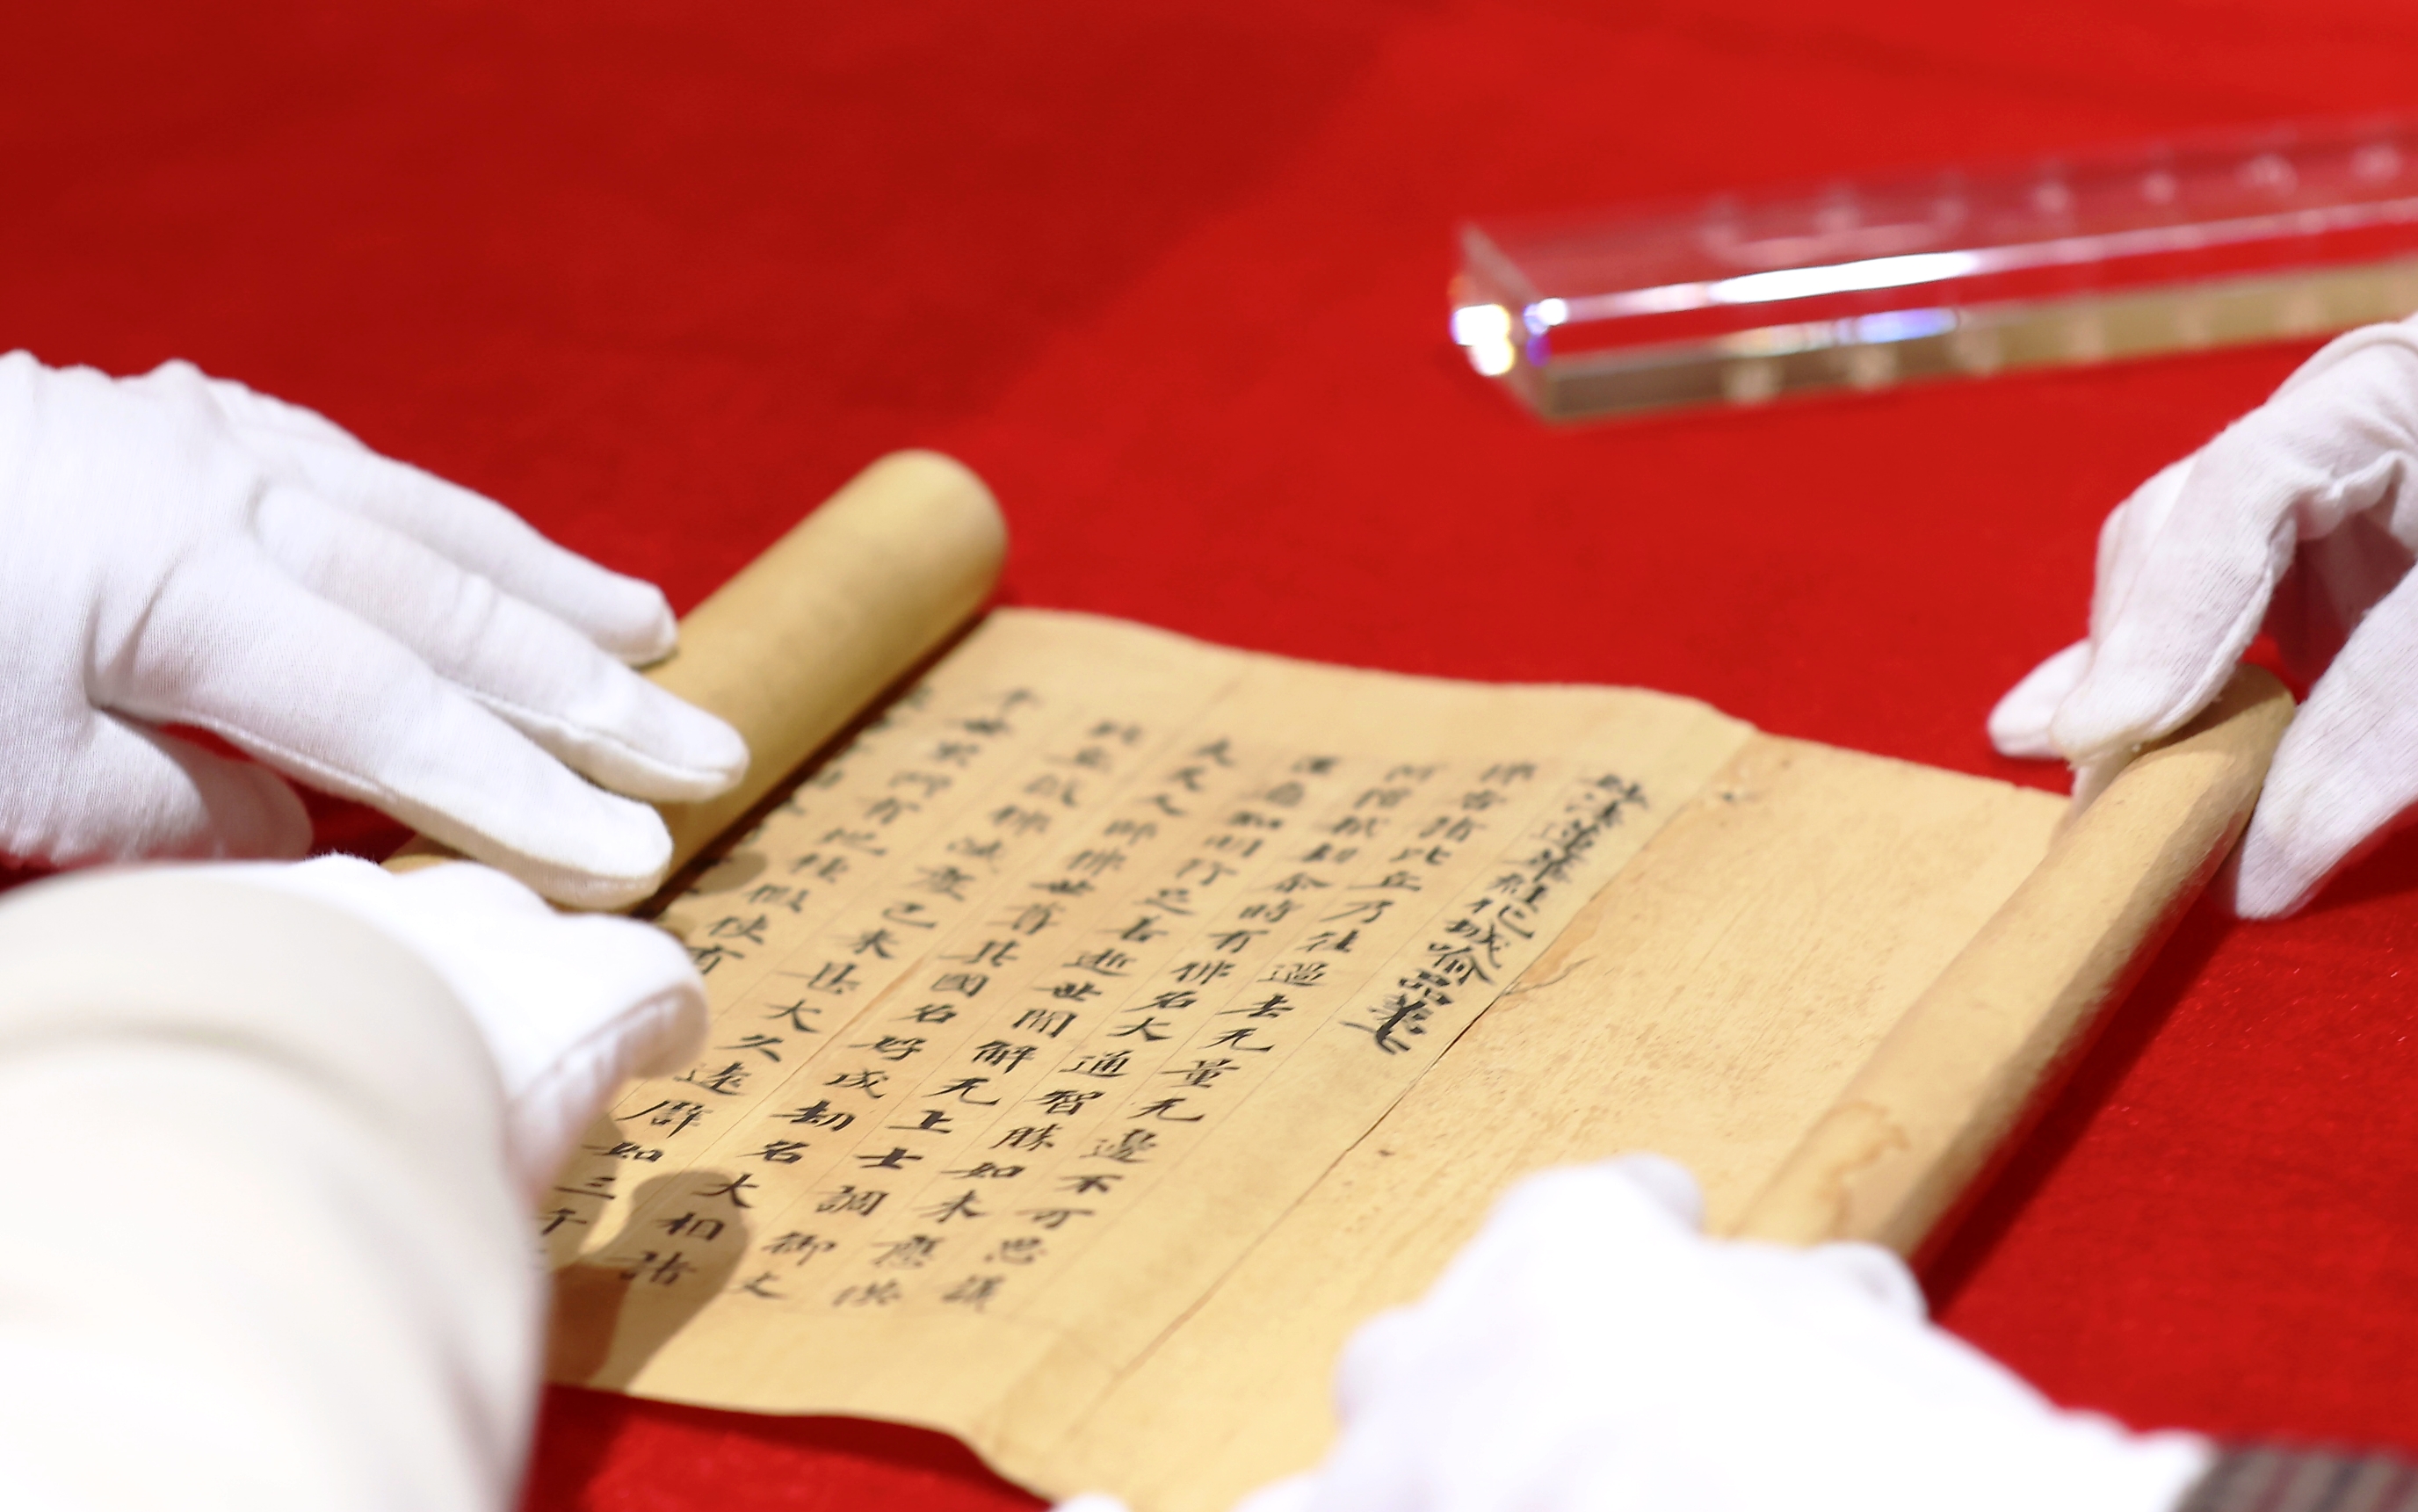 妙法蓮華經化城喻品第七
佛告諸比丘乃往過去无量无邊不可思議
阿僧祇劫尒時有佛名大通智勝如来應供
正遍知明行足善逝世間解无上士調御丈
夫天人師佛世尊其國名好成劫名大相諸
比丘彼佛滅度已来甚大久遠辟如三千
千世界所有地種假使有